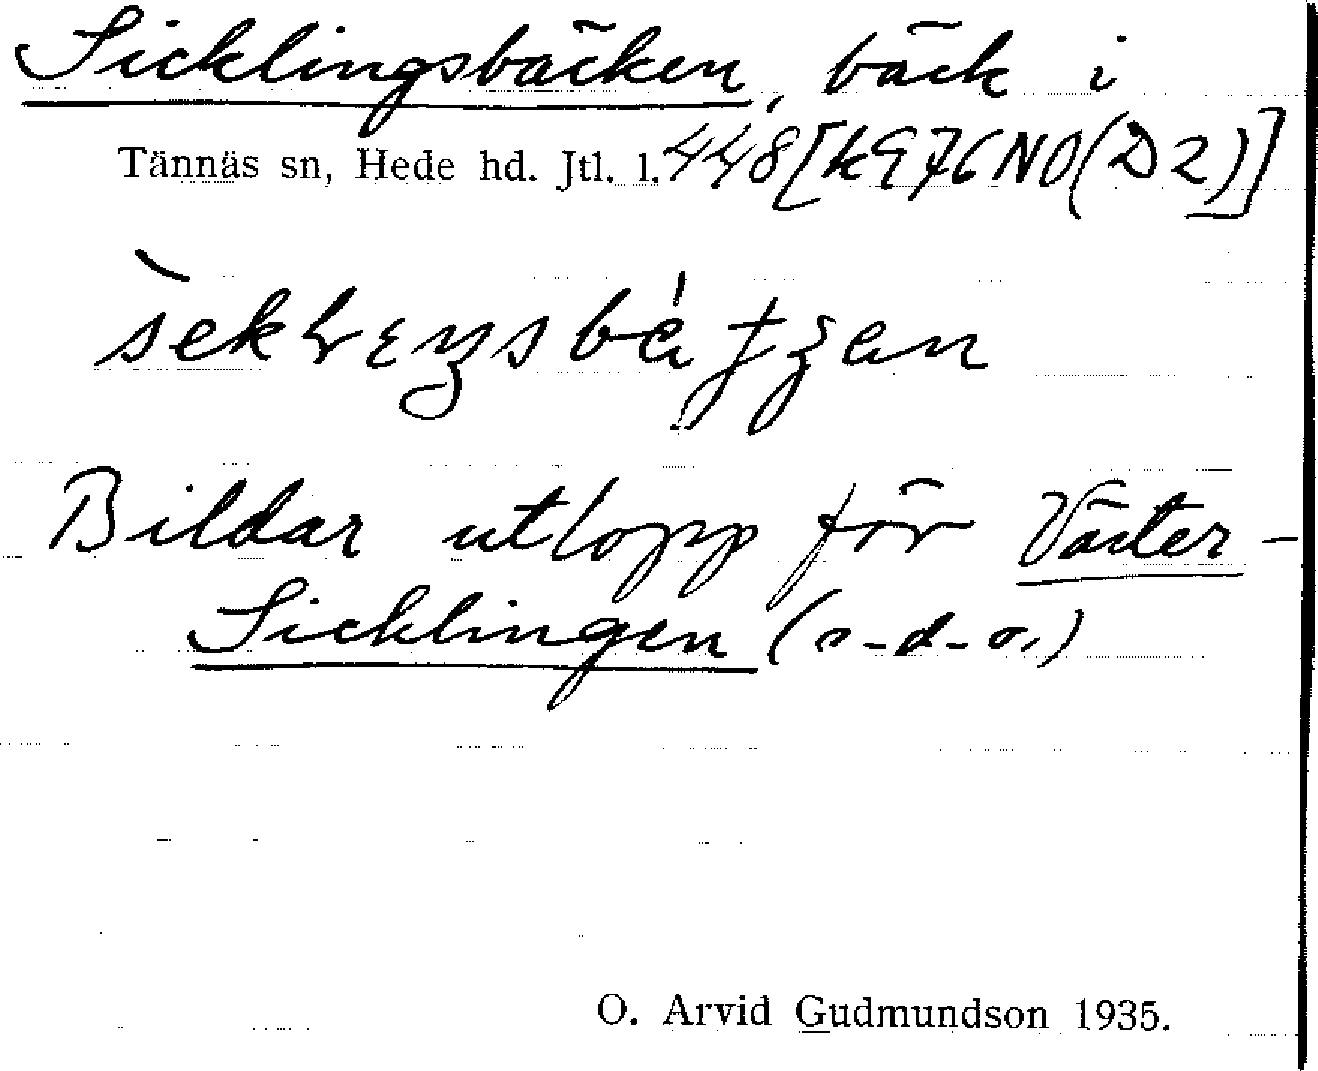 Sicklingsbäcken, bäck i
Tännäs sn, Hede hd. Jtl. l. 448 [k976NO(D2)]
Bildar utlopp för Väster-
Sicklingen (s.d.o.)
O. Arvid Gudmundson 1935.